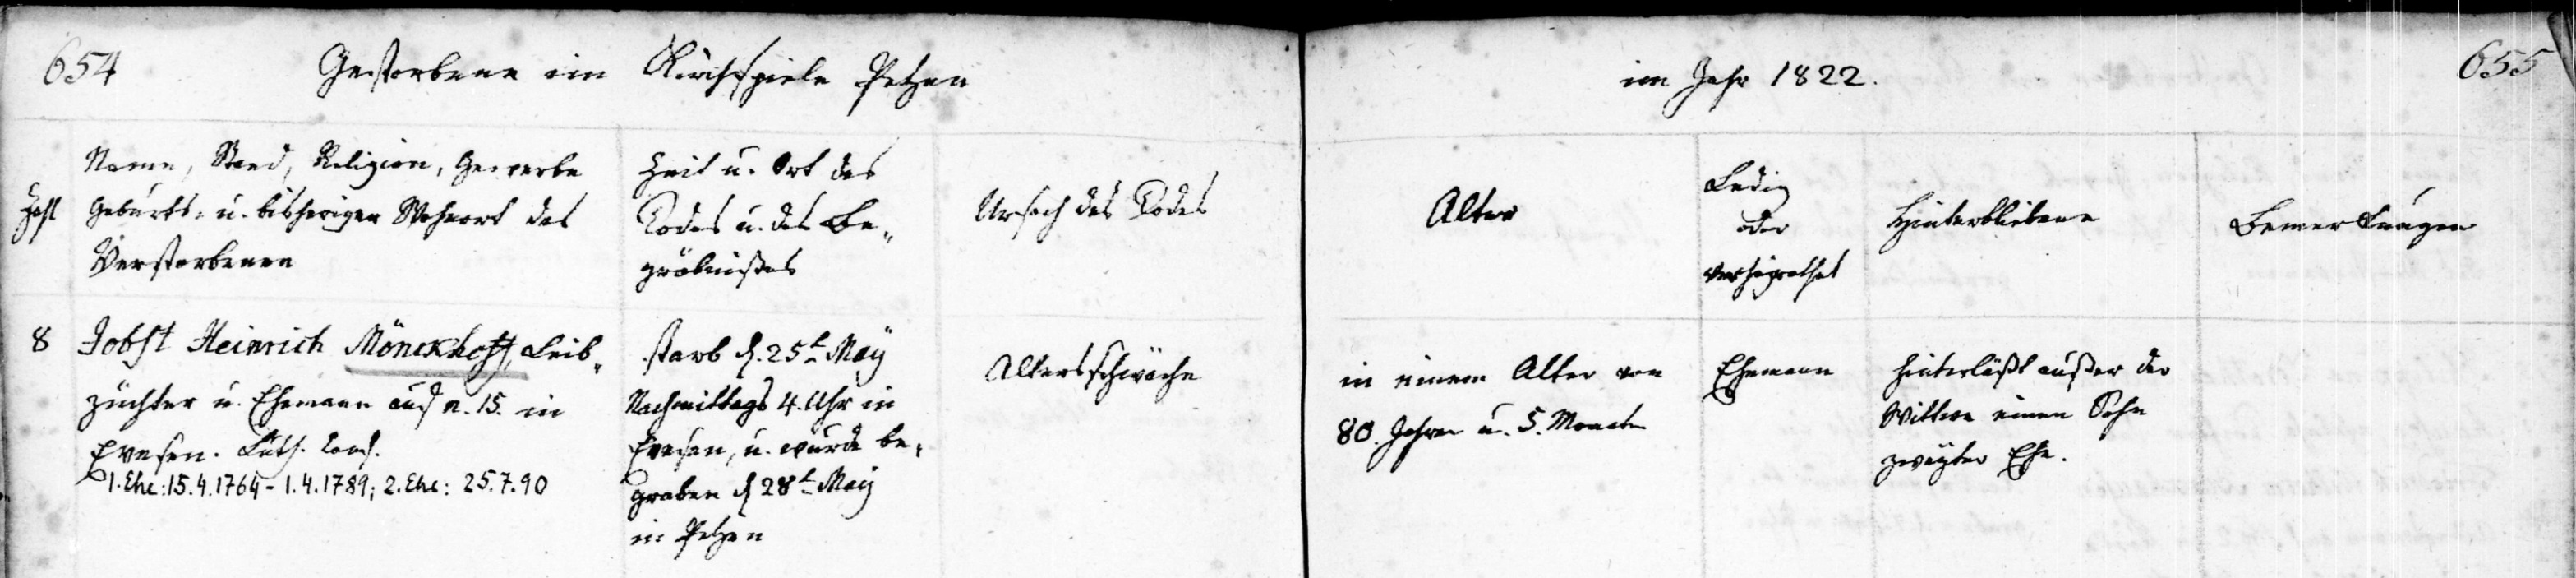 654
Gestorbene im Kirchspiele Petzen
im Jahr 1822.
655
Zahl
Name, Stand, Religion, Gewerbe
Geburts- u. bisherigen Wohnort des
Verstorbenen
Zeit u. Ort des
Todes u. des Be„
gräbnißes
Ursach des Todes
Alter
Ledig
oder
verheyrathet
Hinterbliebene
Bemerkungen
8
Jobst Heinrich Mönckhoff, Leib„
züchter u. Ehemann aus n. 15. in
Evesen. Luth. Conf.
1. Ehe: 15.4.1764 - 1.4.1789; 2. Ehe: 25.7.90
starb d. 25t May
Nachmittags 4. Uhr in
Evesen, u. wurde be„
graben d 28t May
in Petzen
Altersschwäche
in einem Alter von
80. Jahren u. 5. Monaten
Ehemann
hinterläßt außer der
Wittwe einen Sohn
zweyter Ehe.